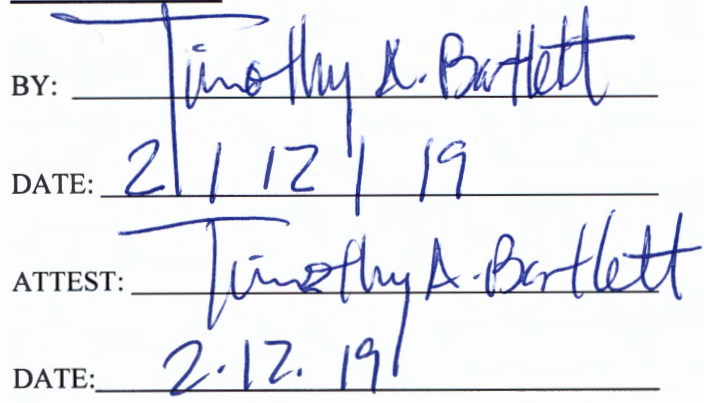 BY: Timothy A. Bartlett
DATE: 2/12/19
ATTEST: Timothy A. Bartlett
DATE: 2.12.19